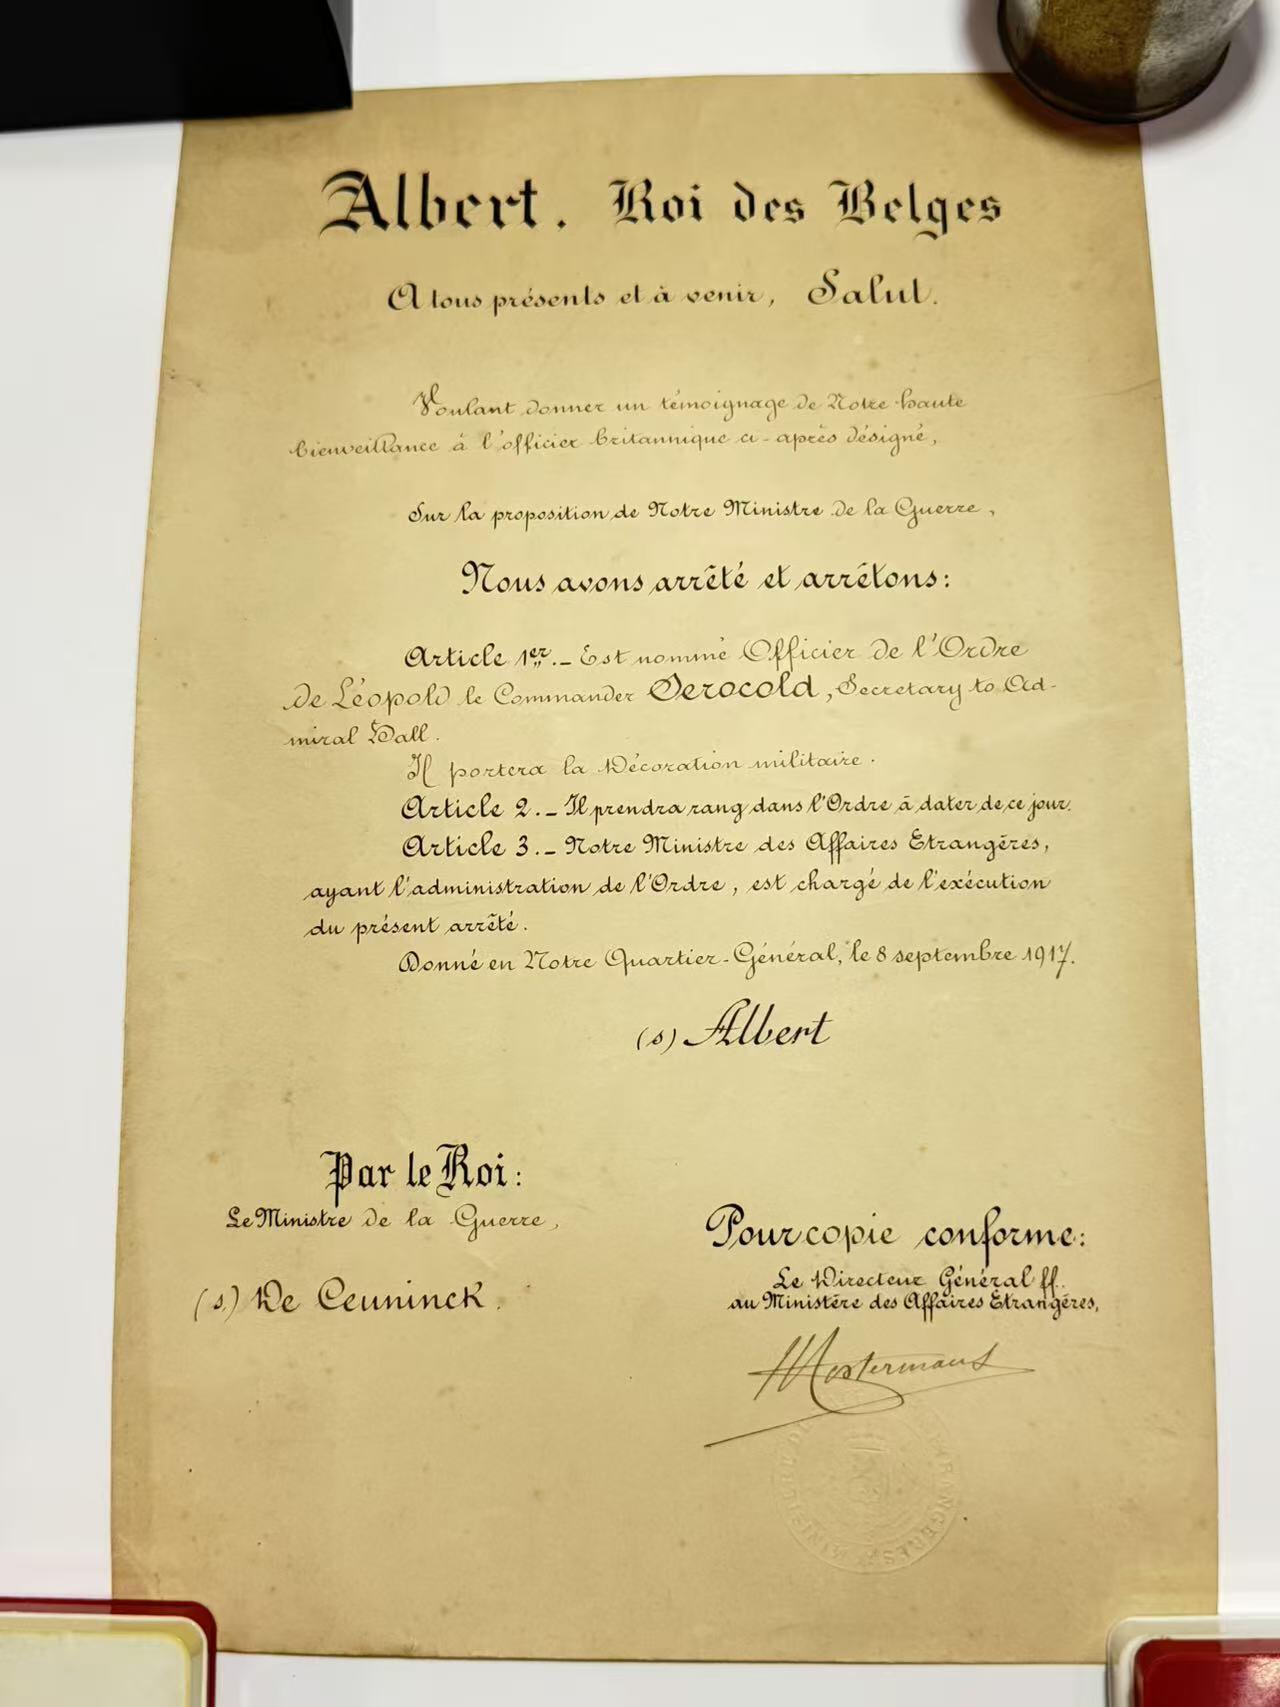 Albert. Roi des Belges
A tous présents et à venir, Salut.
Voulant donner un témoignage de Notre haute
bienveillance à l'officier britannique ci-après désigné,
Sur la proposition de Notre Ministre de la Guerre,
Nous avons arrêté et arrêtons:
Article 1er._ Est nommé Officier de l'Ordre
de Léopold le Commander Serocold, Secretary to Ad-
miral Hall.
Il portera la Décoration militaire.
Article 2._ Il prendra rang dans l'Ordre à dater de ce jour.
Article 3._ Notre Ministre des Affaires Etrangères,
ayant l'administration de l'Ordre, est chargé de l'exécution
du présent arrêté.
Donné en Notre Quartier-Général, le 8 septembre 1917.
(s) Albert
Par le Roi:
Le Ministre de la Guerre,
(s.) De Ceuninck.
Pour copie conforme:
Le Directeur Général ff.
au Ministère des Affaires Etrangères,